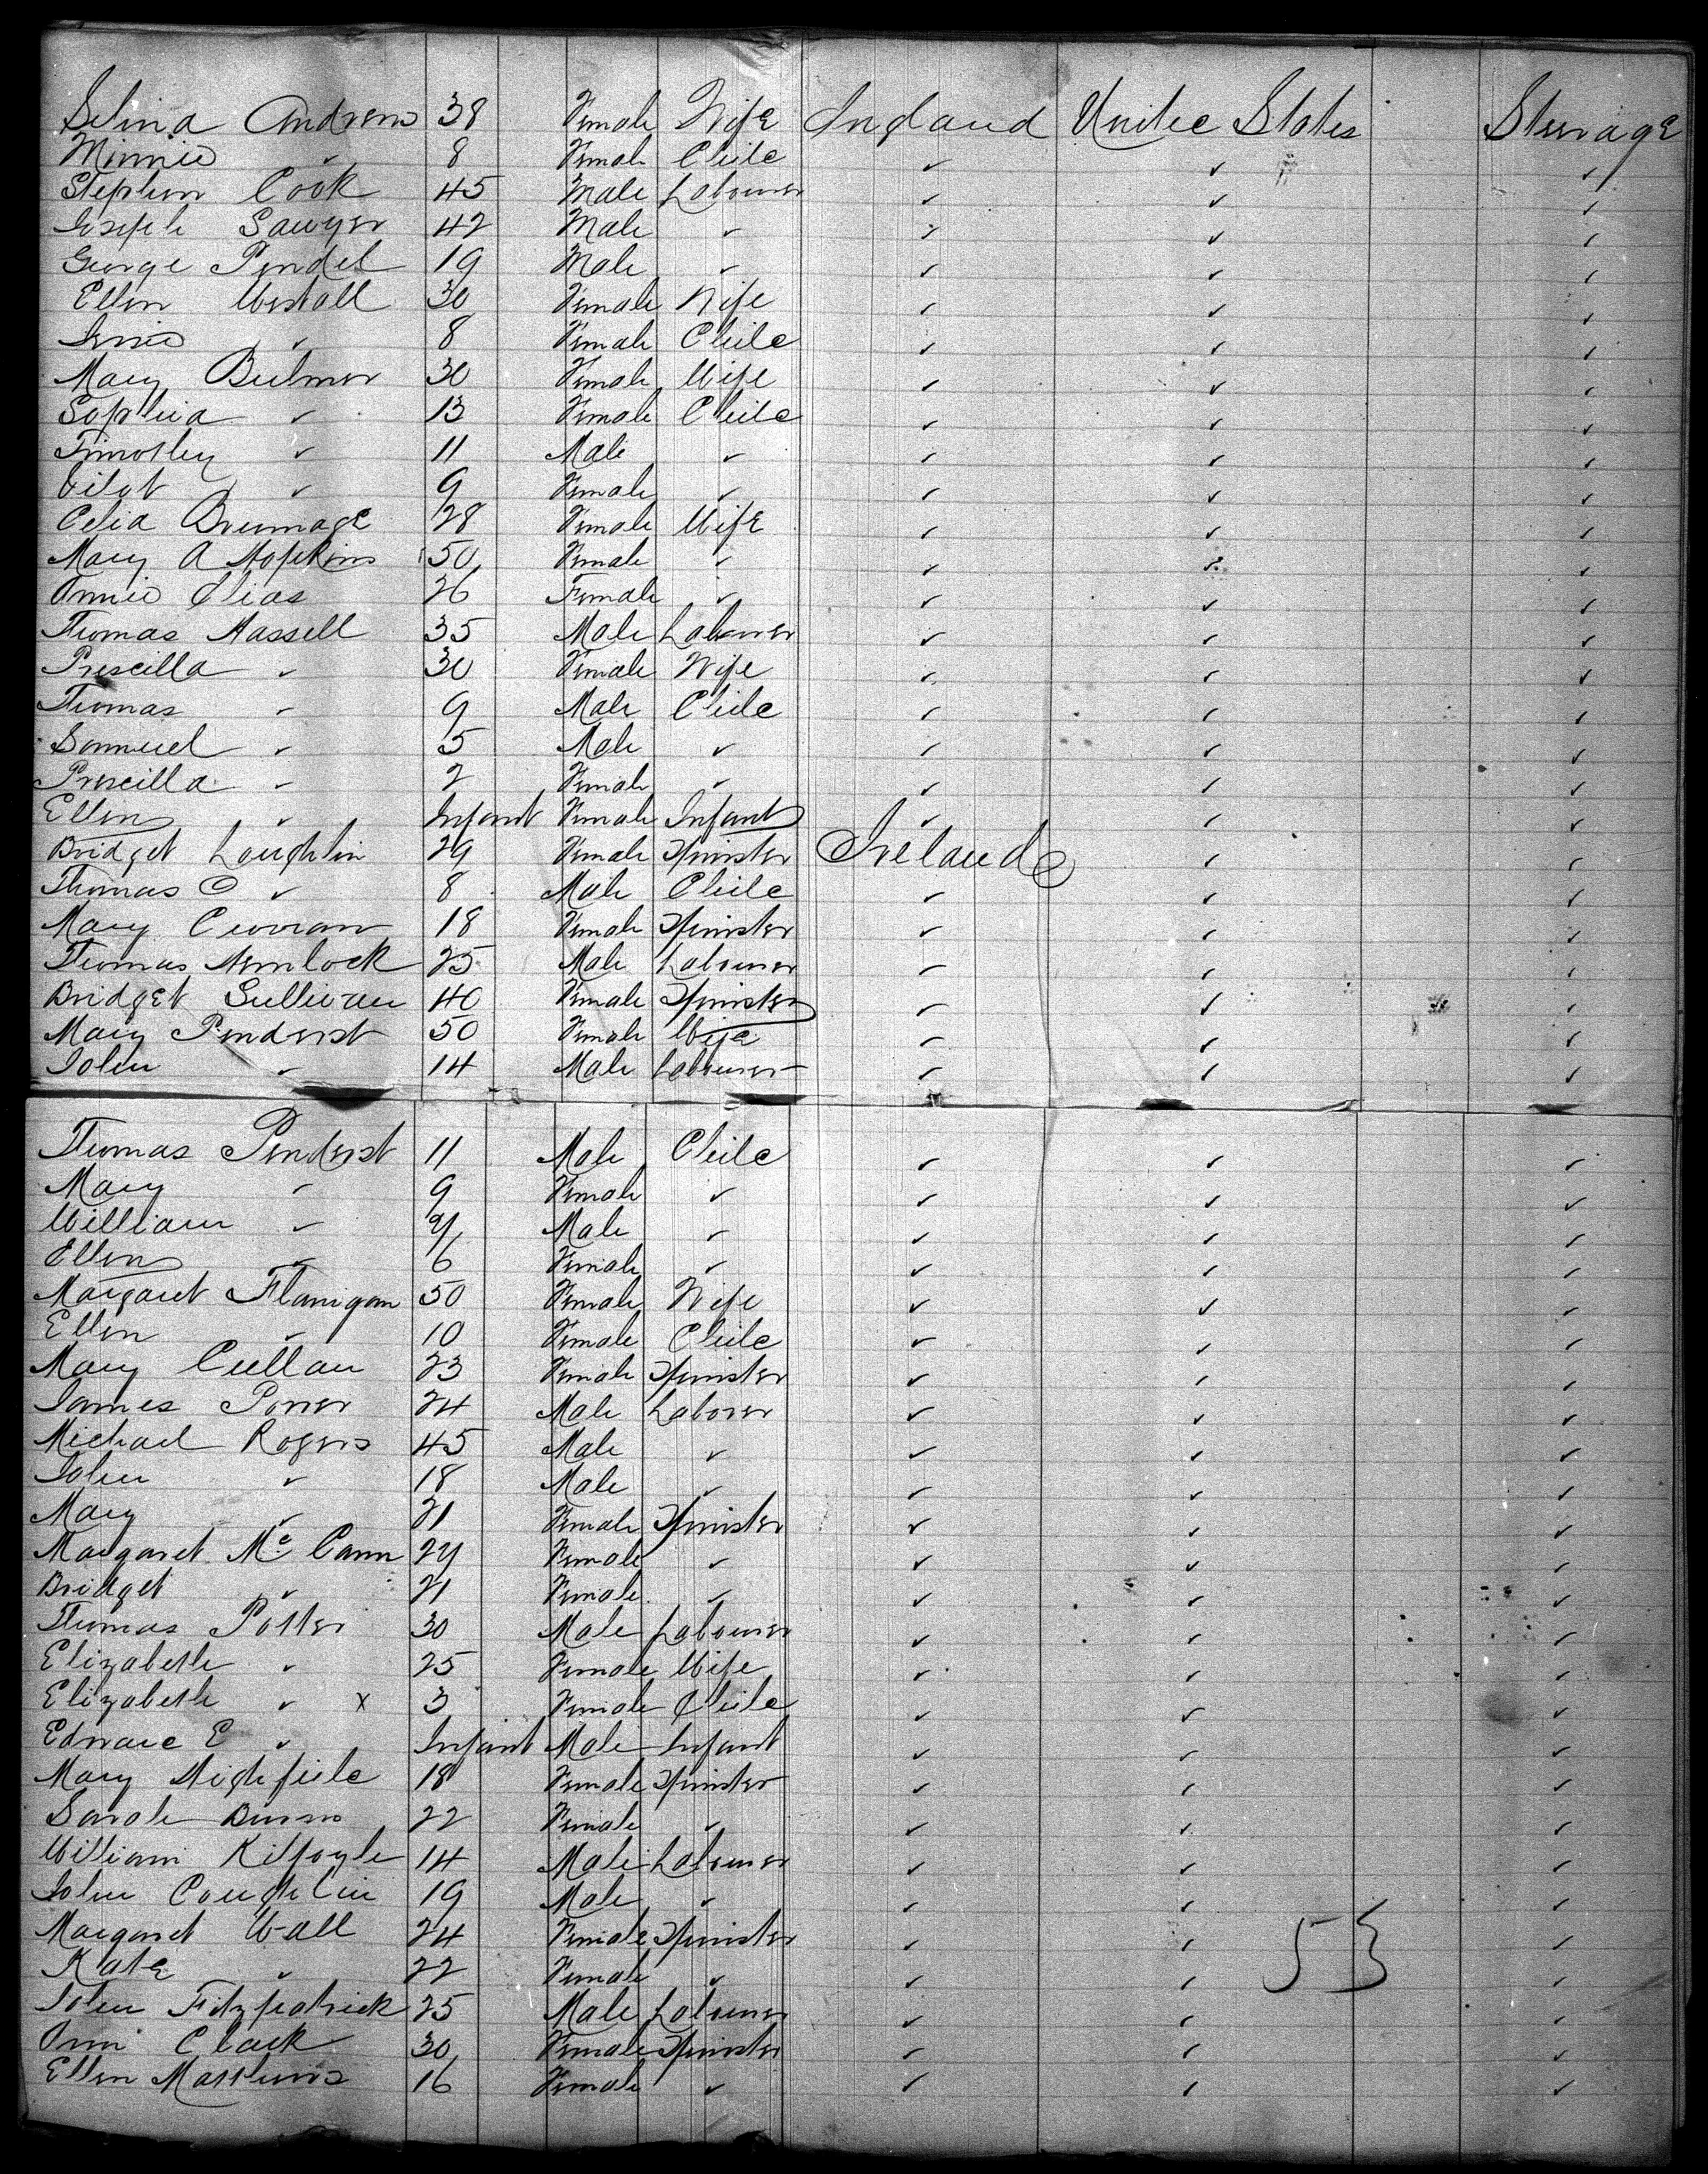 Selina Andrews 38 Female Wife England United States Steerage
Minnie " 8 Female Child " " "
Stephen Cook 45 Male Labourer " " "
Joseph Sawyer 42 Male " " " "
George Pendel 19 Male " " " "
Ellen Westall 30 Female Wife " " "
Jessie " 8 Female Child " " "
Mary Bulmer 30 Female Wife " " "
Sophia " 13 Female Child " " "
Timothy " 11 Male " " " "
" 9 Female " " " "
Celia Brumage 28 Female Wife " " "
Mary A Hopkins 50 Female " " " "
Annie Elias 26 Female " " " "
Thomas Hassell 35 Male Labourer " " "
Prescilla " 30 Female Wife " " "
Thomas " 9 Male Child " " "
Samuel " 5 Male " " " "
Prescilla " 2 Female " " " "
Ellen " Infant Female Infant " " "
Bridget Loughlin 29 Female Spinster Ireland " "
Thomas O " 8 Male Child " " "
Mary Curran 18 Female Spinster " " "
Thomas Hemlock 25 Male Labourer " " "
Bridget Sullivan 40 Female Spinster " " "
Mary Penderst 50 Female Wife " " "
John " 14 Male Labourer " " "
Thomas Penderst 11 Male Child " " "
Mary " 9 Female " " " "
William " Male " " " "
Ellen " 6 Female " " " "
Margaret Flanigan 50 Female Wife " " "
Ellen " 10 Female Child " " "
Mary Cullan 23 Female Spinster " " "
James Power 24 Male Laborer " " "
Michael Rogers 45 Male " " " "
John " 18 Male " " " "
Mary " 21 Female Spinster " " "
Margaret McCann 24 Female " " " "
Bridget " 21 Female " " " "
Thomas Potter 30 Male Labourer " " "
Elizabeth " 25 Female Wife " " "
Elizabeth " x 3 Female Child " " "
Edward E " Infant Male Infant " " "
Mary Highfield 18 Female Spinster " " "
Sarah Burns 22 Female " " " "
William Kilfoyle 14 Male Labourer " " "
John Coughlin 19 Male " " " "
Margaret Wall 24 Female Spinster " " "
Kate " 22 Female " " " 53 "
John Fitzpatrick 25 Male Labourer " " "
Ann Clark 30 Female Spinster " " "
Ellen Matthews 16 Female " " " "